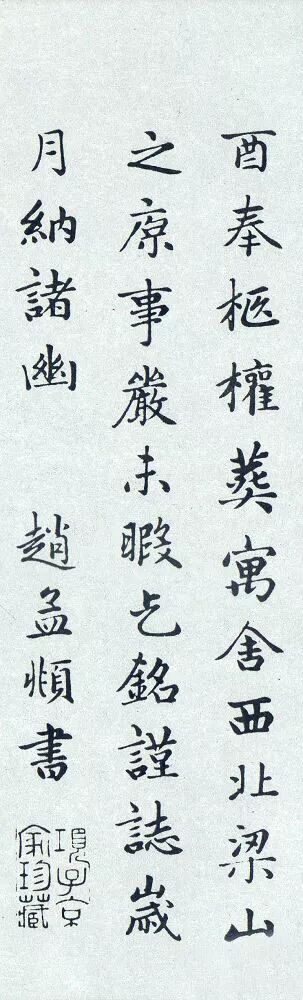 酉奉柩權葬寓舍西北梁山
之原事嚴未暇乞銘謹誌歲
月納諸幽 趙孟頫書
項子京
家珍藏